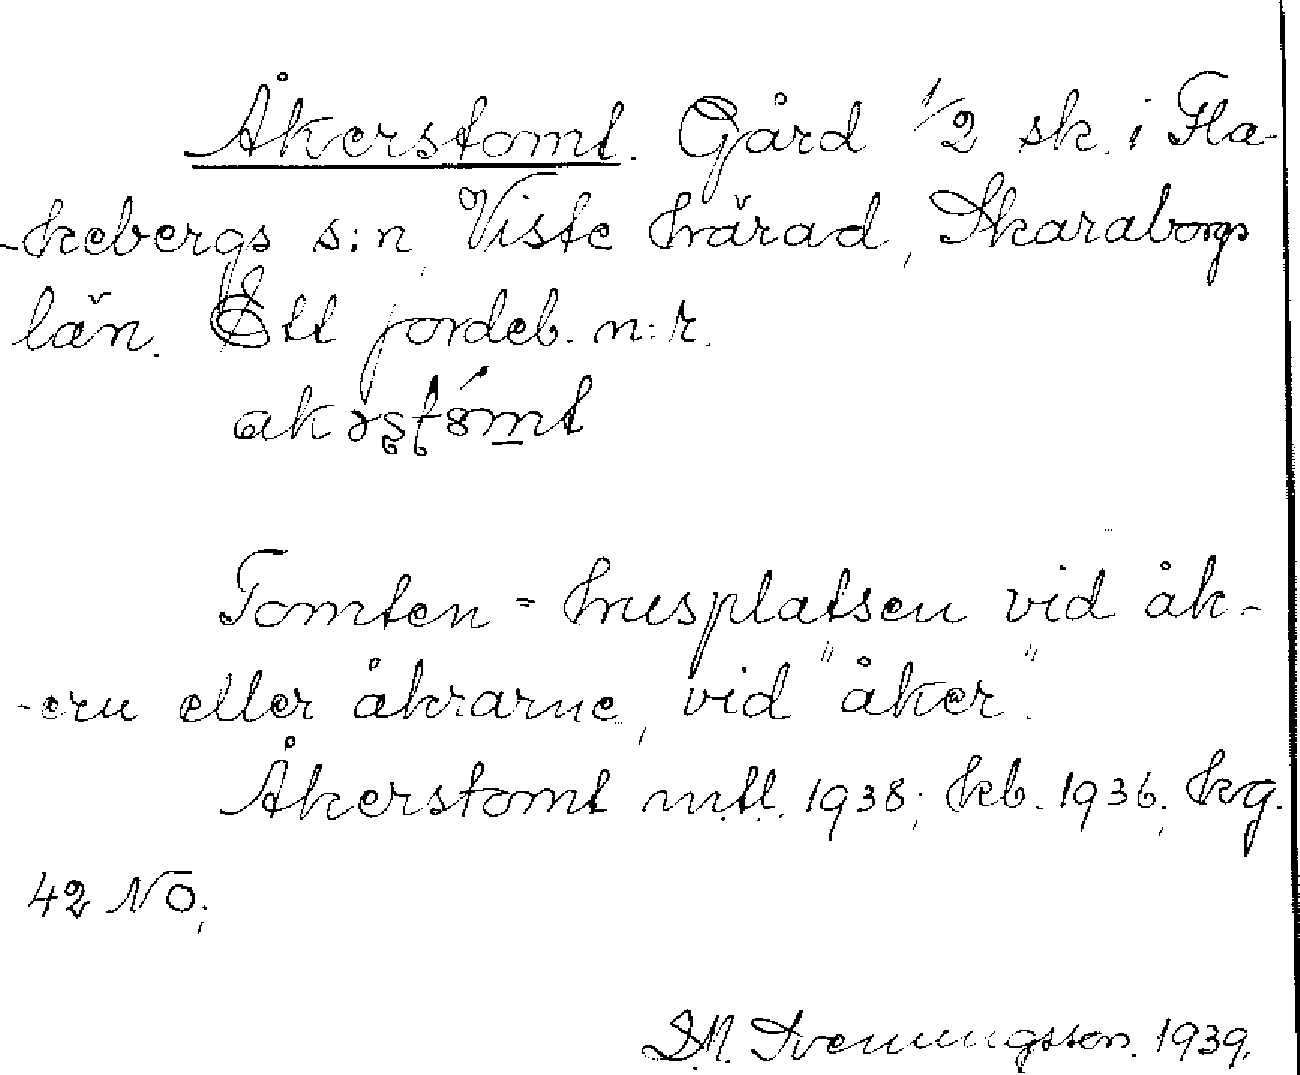 Åkerstomt. Gård 1/2 sk. i Fla-
-kebergs s:n, Viste härad, Skaraborgs
län. Ett jordeb. n:r.
Tomten = husplatsen vid åk-
-ern eller åkrarne, vid "åker".
Åkerstomt mtl. 1938; kb. 1936; kg.
42 NO;
D.M. Svenningsson. 1939.